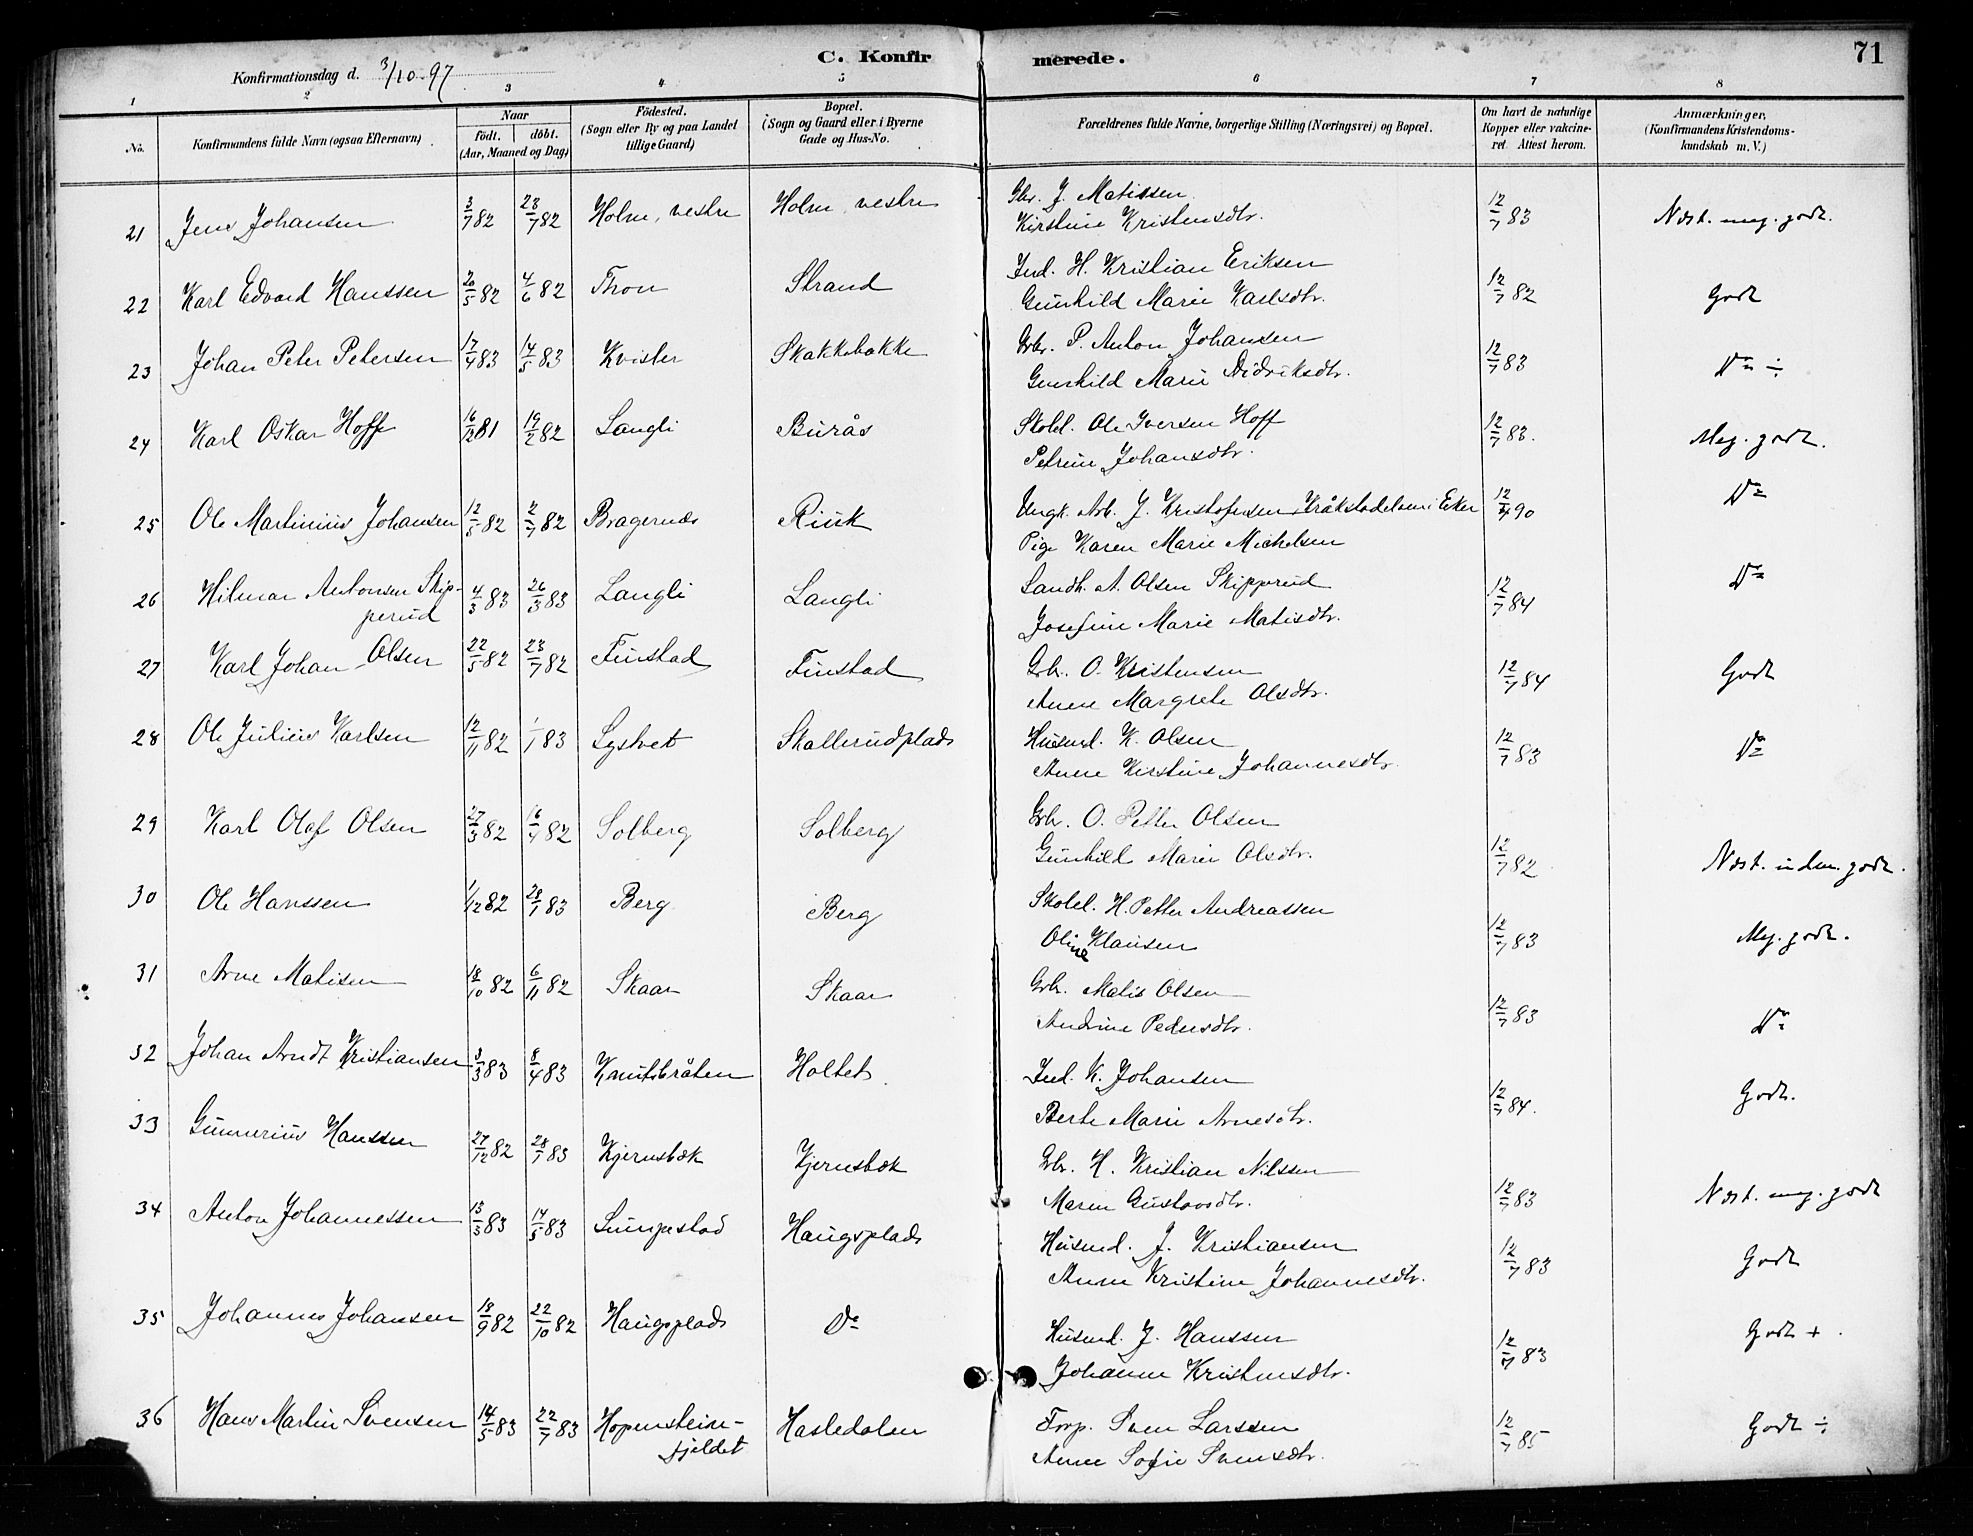 C. Konfirmerede. 71
Konfirmationsdag d. 3/10 97
1 2 3 4 5 6 7 8
No. Konfirmandens fulde Navn (ogsaa Efternavn) Naar födt. döbt. (Aar, Maaned og Dag) Födested. (Sogn eller By og paa Landet tillige Gaard) Bopæl. (Sogn og Gaard eller i Byerne Gade og Hus-No. Forældrenes fulde Navne, borgerlige Stilling (Næringsvei) og Bopæl. Om havt de naturlige Kopper eller vakcineret. Attest herom. Anmærkninger. (Konfirmandens Kristendomskundskab m. V.)
21 Jens Johansen 3/7 82 23/7 82 Holm, vestre Holm, vestre Gbr. J. Matissen 12/7 83 Næst. meg. godt.
Kirstine Kristensdtr.
22 Karl Edvard Hanssen 20/5 82 4/6 82 Thon Strand Ind. H. Kristian Eriksen 12/7 82 Godt
Gunhild Marie Karlsdtr.
23 Johan Peter Petersen 17/4 83 14/5 83 Kvisler Skakkebakke Gbr. P. Anton Johansen 12/7 83 Do ÷
Gunhild Marie Didriksdtr.
24 Karl Oskar Hoff 16/12 81 19/2 82 Langli Burås Skolel. Ole Iversen Hoff 12/7 83. Meg. godt.
Petrine Johansdtr.
25 Ole Martinius Johansen 12/5 82 2/7 82 Bragernæs Riisk Ungk. Arb. J. Kristofersen Kråkstadelven i Eker 12/7 90 Do
Pige Karen Marie Michelsen
26 Hilmar Antonsen Skip- 4/3 83 26/3 83 Langli Langli Landh. A. Olsen Skipperud 12/7 84 Do
perud Josefine Marie Matisdtr.
27 Karl Johan Olsen 22/5 82 23/7 82 Finstad Finstad Gbr. O. Kristensen 12/7 84 Godt
Anne Margrete Olsdtr.
28 Ole Julius Karlsen 12/11 82 1/1 83 Lystvet Skallerudplads Husmd. K. Olsen 12/7 83 Do
Anne Kirstine Johannesdtr.
29 Karl Olaf Olsen 27/3 82 16/4 82 Solberg Solberg Gbr. O. Petter Olsen 12/7 82 Næst. uden. godt.
Gunhild Marie Olsdtr.
30 Ole Hanssen 1/12 82 28/1 83 Berg Berg Skolel. H. Petter Andreassen 12/7 83 Meg. godt.
Oline Klausen
31 Arne Matisen 18/10 82 6/11 82 Skaar Skaar Gbr. Matis Olsen 12/7 83 Do
Andrine Pedersdtr.
32 Johan Arndt Kristiansen 3/3 83 8/4 83 Knutsbråten Holtet Ind. K. Johansen 12/7 84. Godt.
Berte Marie Arnesdtr.
33 Gunnerius Hanssen 27/12 82 28/1 83 Kjernsbæk Kjernsbæk Gbr. H. Kristian Nilssen 12/7 83 Næst. meg. godt
Maren Gustavsdtr.
34 Anton Johannessen 13/3 83 14/5 83 Lumpestad Haugsplads Husmd. J. Kristiansen 12/7 83 Godt
Anne Kristine Johannesdtr.
35 Johannes Johansen 18/9 82 22/10 82 Haugsplads Do Husmd. J. Hanssen 12/7 83 Godt +
Johanne Kristensdtr.
36 Hans Martin Svensen 14/5 83 22/7 83 Hopensteine- Hasledalen Forp. Sven Larssen 12/7 85 Godt ÷
fjeldet Anne Sofie Svensdtr.